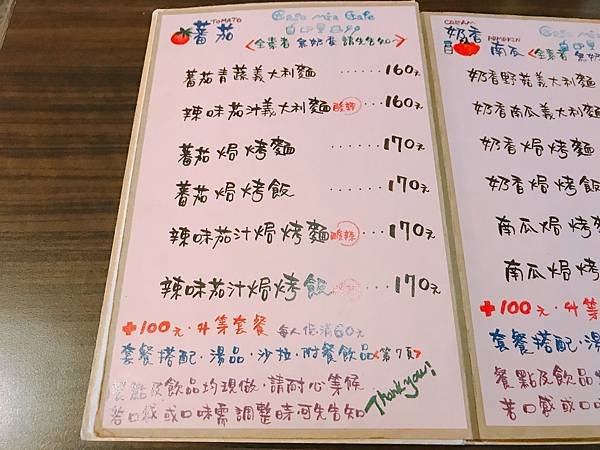 TOMATO
蕃茄
Cafe mia Cafe
<全素者 無奶蛋 請先告知~>
蕃茄青蔬義大利麵 ······ 160元
辣味茄汁義大利麵 酸辣 ··· 160元
蕃茄焗烤麵 ··· 170元
蕃茄焗烤飯 ··· 170元
辣味茄汁焗烤麵 酸辣 ··· 170元
辣味茄汁焗烤飯 ··· 170元
+100元·升等套餐
套餐搭配·湯品·沙拉·附餐飲品<第7頁>
餐點及飲品均現做·請耐心等候
若口感或口味需調整時可先告知
Thank you!
CREAM
奶香
PUMPKIN
南瓜
<全素者 無奶
奶香野菇義大利麵
奶香南瓜義大利麵
奶香焗烤麵
奶香焗烤飯
南瓜焗烤
南瓜焗烤
+100元·升等
套餐搭配·湯
餐點及飲品
若口感或口味